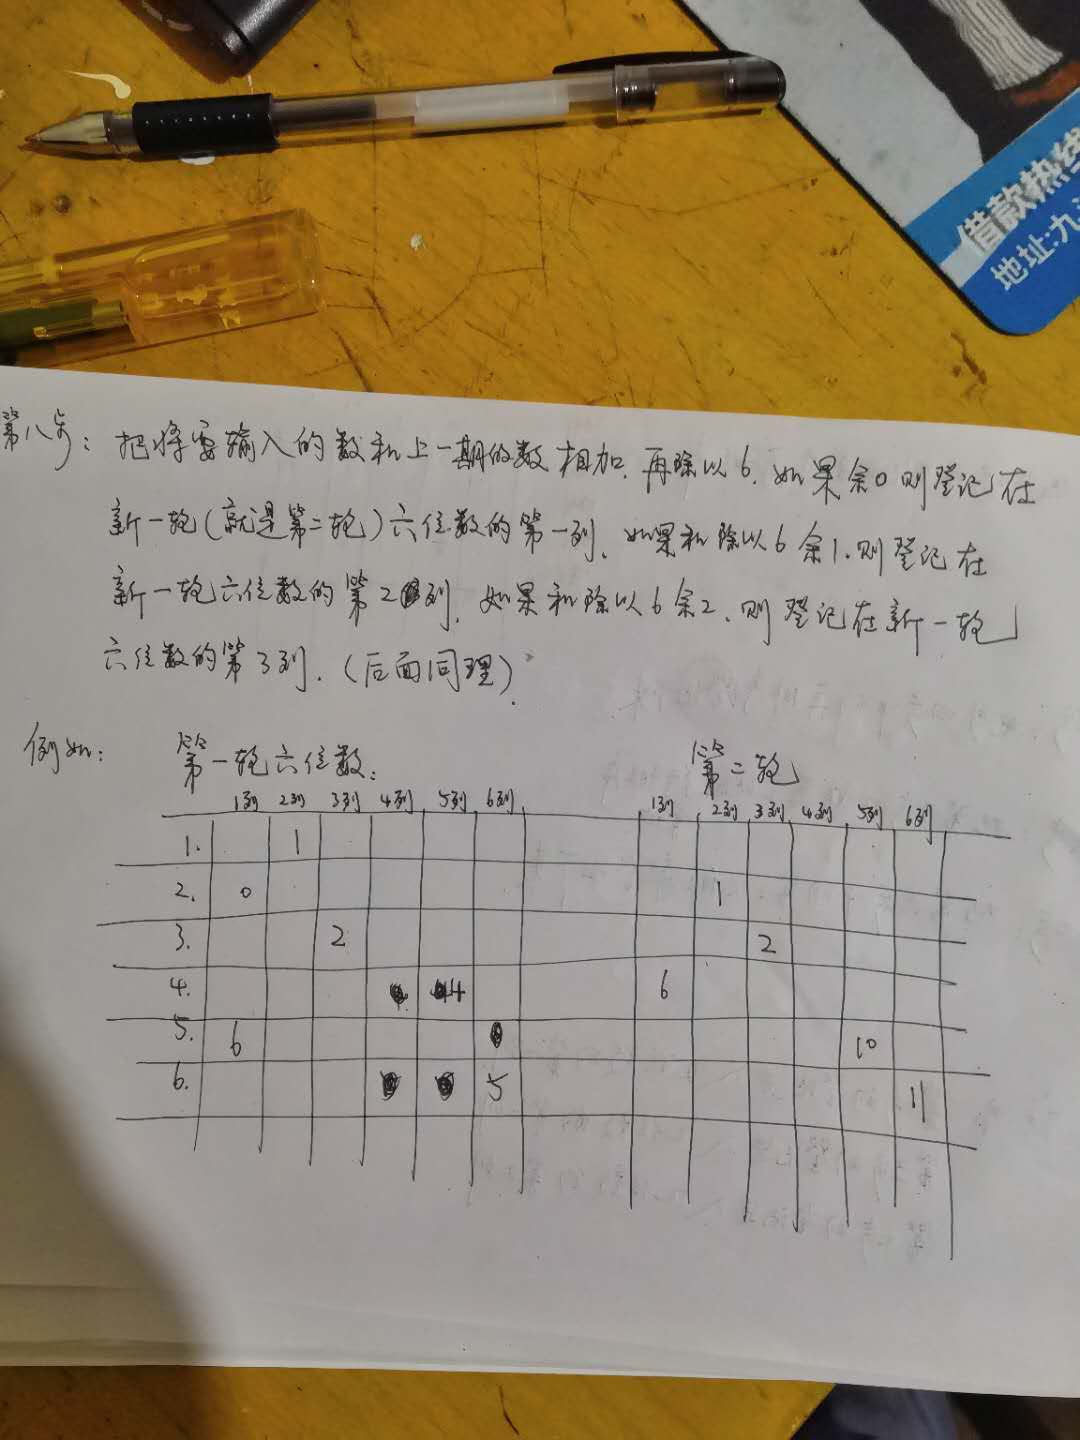 借款热线
地址:九
第八步: 把将要输入的数和上一期的数相加.再除以6.如果余0则登记在
新一轮(就是第二轮)六位数的第一列.如果和除以6余1.则登记在
新一轮六位数的第2列.如果和除以6余2.则登记在新一轮
六位数的第3列.(后面同理).
例如: 第一轮六位数: 第二轮
1列 2列 3列 4列 5列 6列 1列 2列 3列 4列 5列 6列
1. 1
2. 0 1
3. 2 2
4. 4 6
5. 6 10
6. 5 11